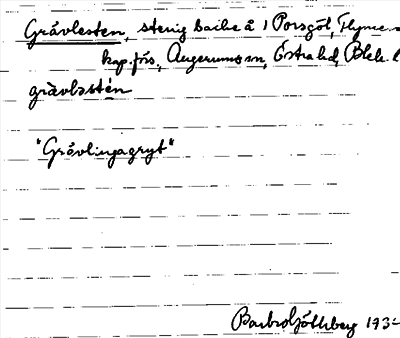 Grävlesten, stenig backe å 1 Porsgöl, Flyme-
kap.förs, Augerums sn, Östra hd, Blek. l
grävləstén
"Grävlingagryt"
193-